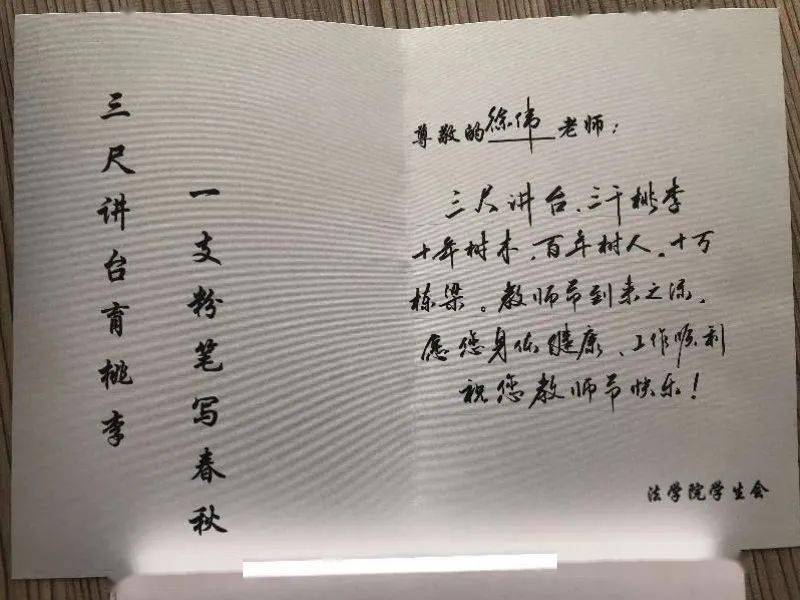 三尺讲台育桃李
一支粉笔写春秋
尊敬的徐伟老师：
三尺讲台、三千桃李
十年树木、百年树人。十万
栋梁。教师节到来之际，
愿您身体健康、工作顺利
祝您教师节快乐！
法学院学生会